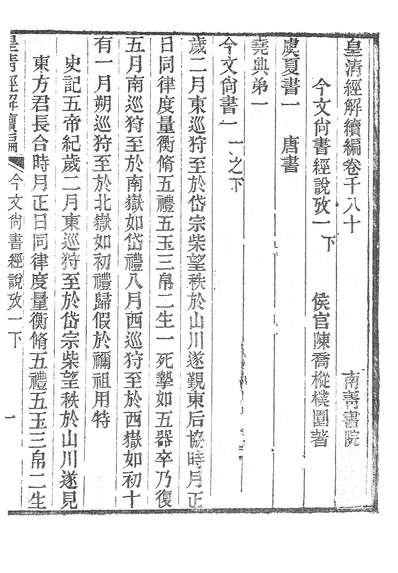 皇清經解續編卷千八十　南菁書院
今文尙書經說攷一下　侯官陳喬樅樸園著
虞夏書一　唐書
堯典弟一
今文尙書一　一之下
歲二月東巡狩至於岱宗柴望秩於山川遂覲東后協時月正
日同律度量衡脩五禮五玉三帛二生一死摯如五器卒乃復
五月南巡狩至於南嶽如岱禮八月西巡狩至於西嶽如初十
有一月朔巡狩至於北嶽如初禮歸假於禰祖用特
史記五帝紀歲二月東巡狩至於岱宗柴望秩於山川遂見
東方君長合時月正日同律度量衡脩五禮五玉三帛二生
皇清經解續編　今文尙書經說攷一下　一